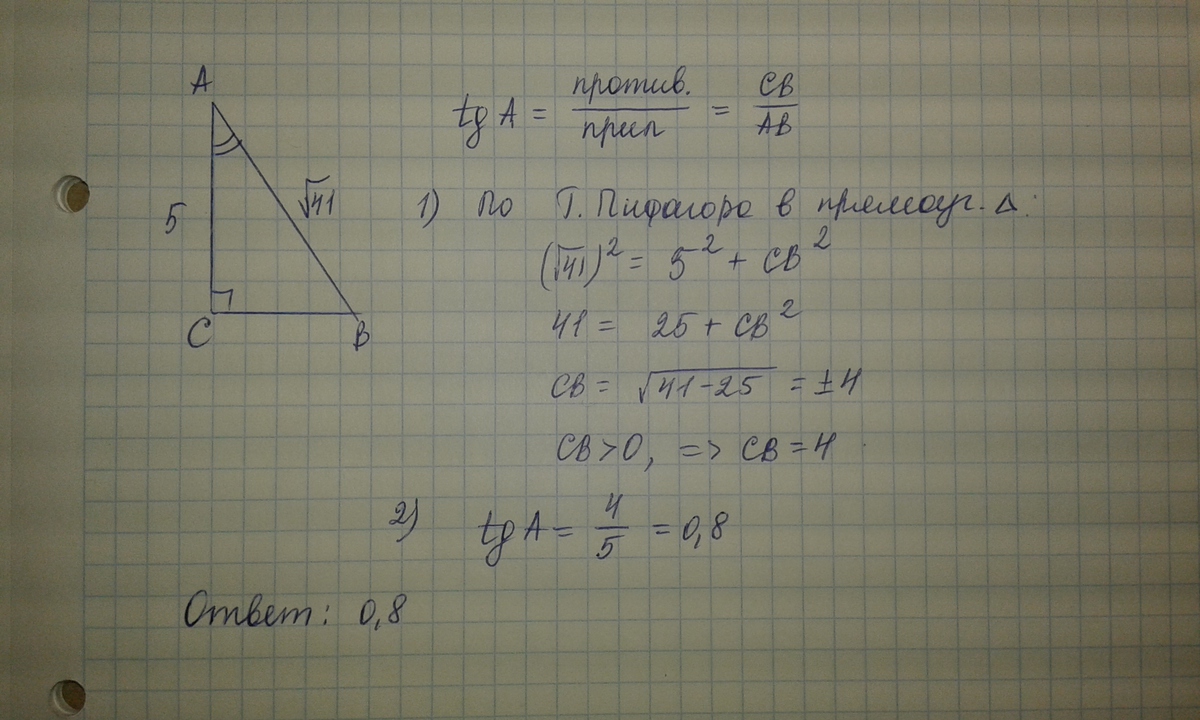 A
5
√41
C
B
tg A = против. / прил = CB / AB
1) По Т. Пифагора в прямоуг. Δ:
(√41)² = 5² + CB²
41 = 25 + CB²
CB = √41-25 = ±4
CB>0, => CB=4
2) tg A = 4/5 = 0,8
Ответ: 0,8